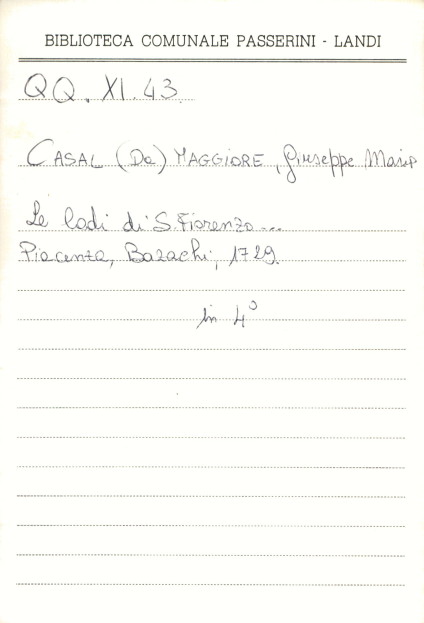 BIBLIOTECA COMUNALE PASSERINI - LANDI
QQ. XI. 43.
CASAL (Da) MAGGIORE, Giuseppe Maria
Le lodi di S. Fiorenzo...
Piacenza, Bazachi, 1729.
in 4°